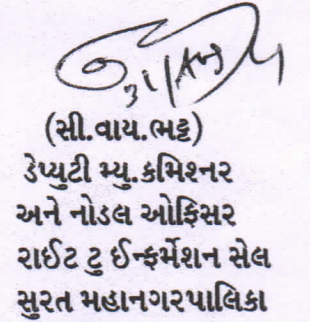 (સી.વાય.ભટ્ટ)
ડેપ્યુટી મ્યુ.કમિશ્નર
અને નોડલ ઓફિસર
રાઈટ ટુ ઈન્ફર્મેશન સેલ
સુરત મહાનગરપાલિકા